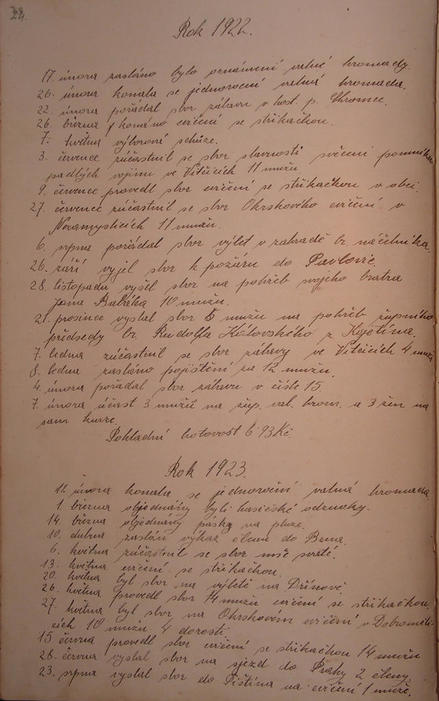 Rok 1922.
17. února zasláno bylo oznámení valné hromady.
26. února konala se jednoroční valná hromada.
22. února pořádal sbor zábavu v host. p.
26. března konáno cvičení se stříkačkou.
7. května výborová schůze.
3. července zúčastnil se sbor slavnosti svěcení pomníku
padlých vojínů ve Vítčicích 11 mužů
9. července provedl sbor cvičení se stříkačkou v obci.
27. července zúčastnil se sbor Okrskového cvičení v
Nezamyslicích 11 mužů.
6. srpna pořádal sbor výlet v zahradě br. náčelníka.
26. září vyjel sbor k požáru do Pavlovic
28. listopadu vyšel sbor na pohřeb svojího bratra
Jana 10 mužů.
21. prosince vyslal sbor 8 mužů na pohřeb župního
předsedy br. Rudolfa z Kojetína.
7. ledna zúčastnil se sbor zábavy ve Vítčicích 4 muži
8. ledna zasláno pojištění za 12 mužů.
4. února pořádal sbor zábavu v čísle 15.
7. února účast 3 mužů na žup. val. hrom. a 3 žen na
sam. kurze.
Pokladní hotovost 693 Kč
Rok 1923.
11. února konala se jednoroční valná hromada
1. března objednány byli hasičské odznaky.
14. března objednány pásky na pluze.
10. dubna zaslán výkaz členů do Brna.
6. května zúčastnil se sbor mše svaté.
13. května cvičení se stříkačkou.
20. května byl sbor na výletě na Dřínově
26. května provedl sbor 14 mužů cvičení se stříkačkou.
27. května byl sbor na Okrskovém cvičení v Dobroměli-
cích 10 mužů 4 dorosti.
15. června provedl sbor cvičení se stříkačkou 14 mužů
28. června vyslal sbor na sjezd do Prahy 2 členy.
23. srpna vyslal sbor do Tištína na cvičení 1 muže.